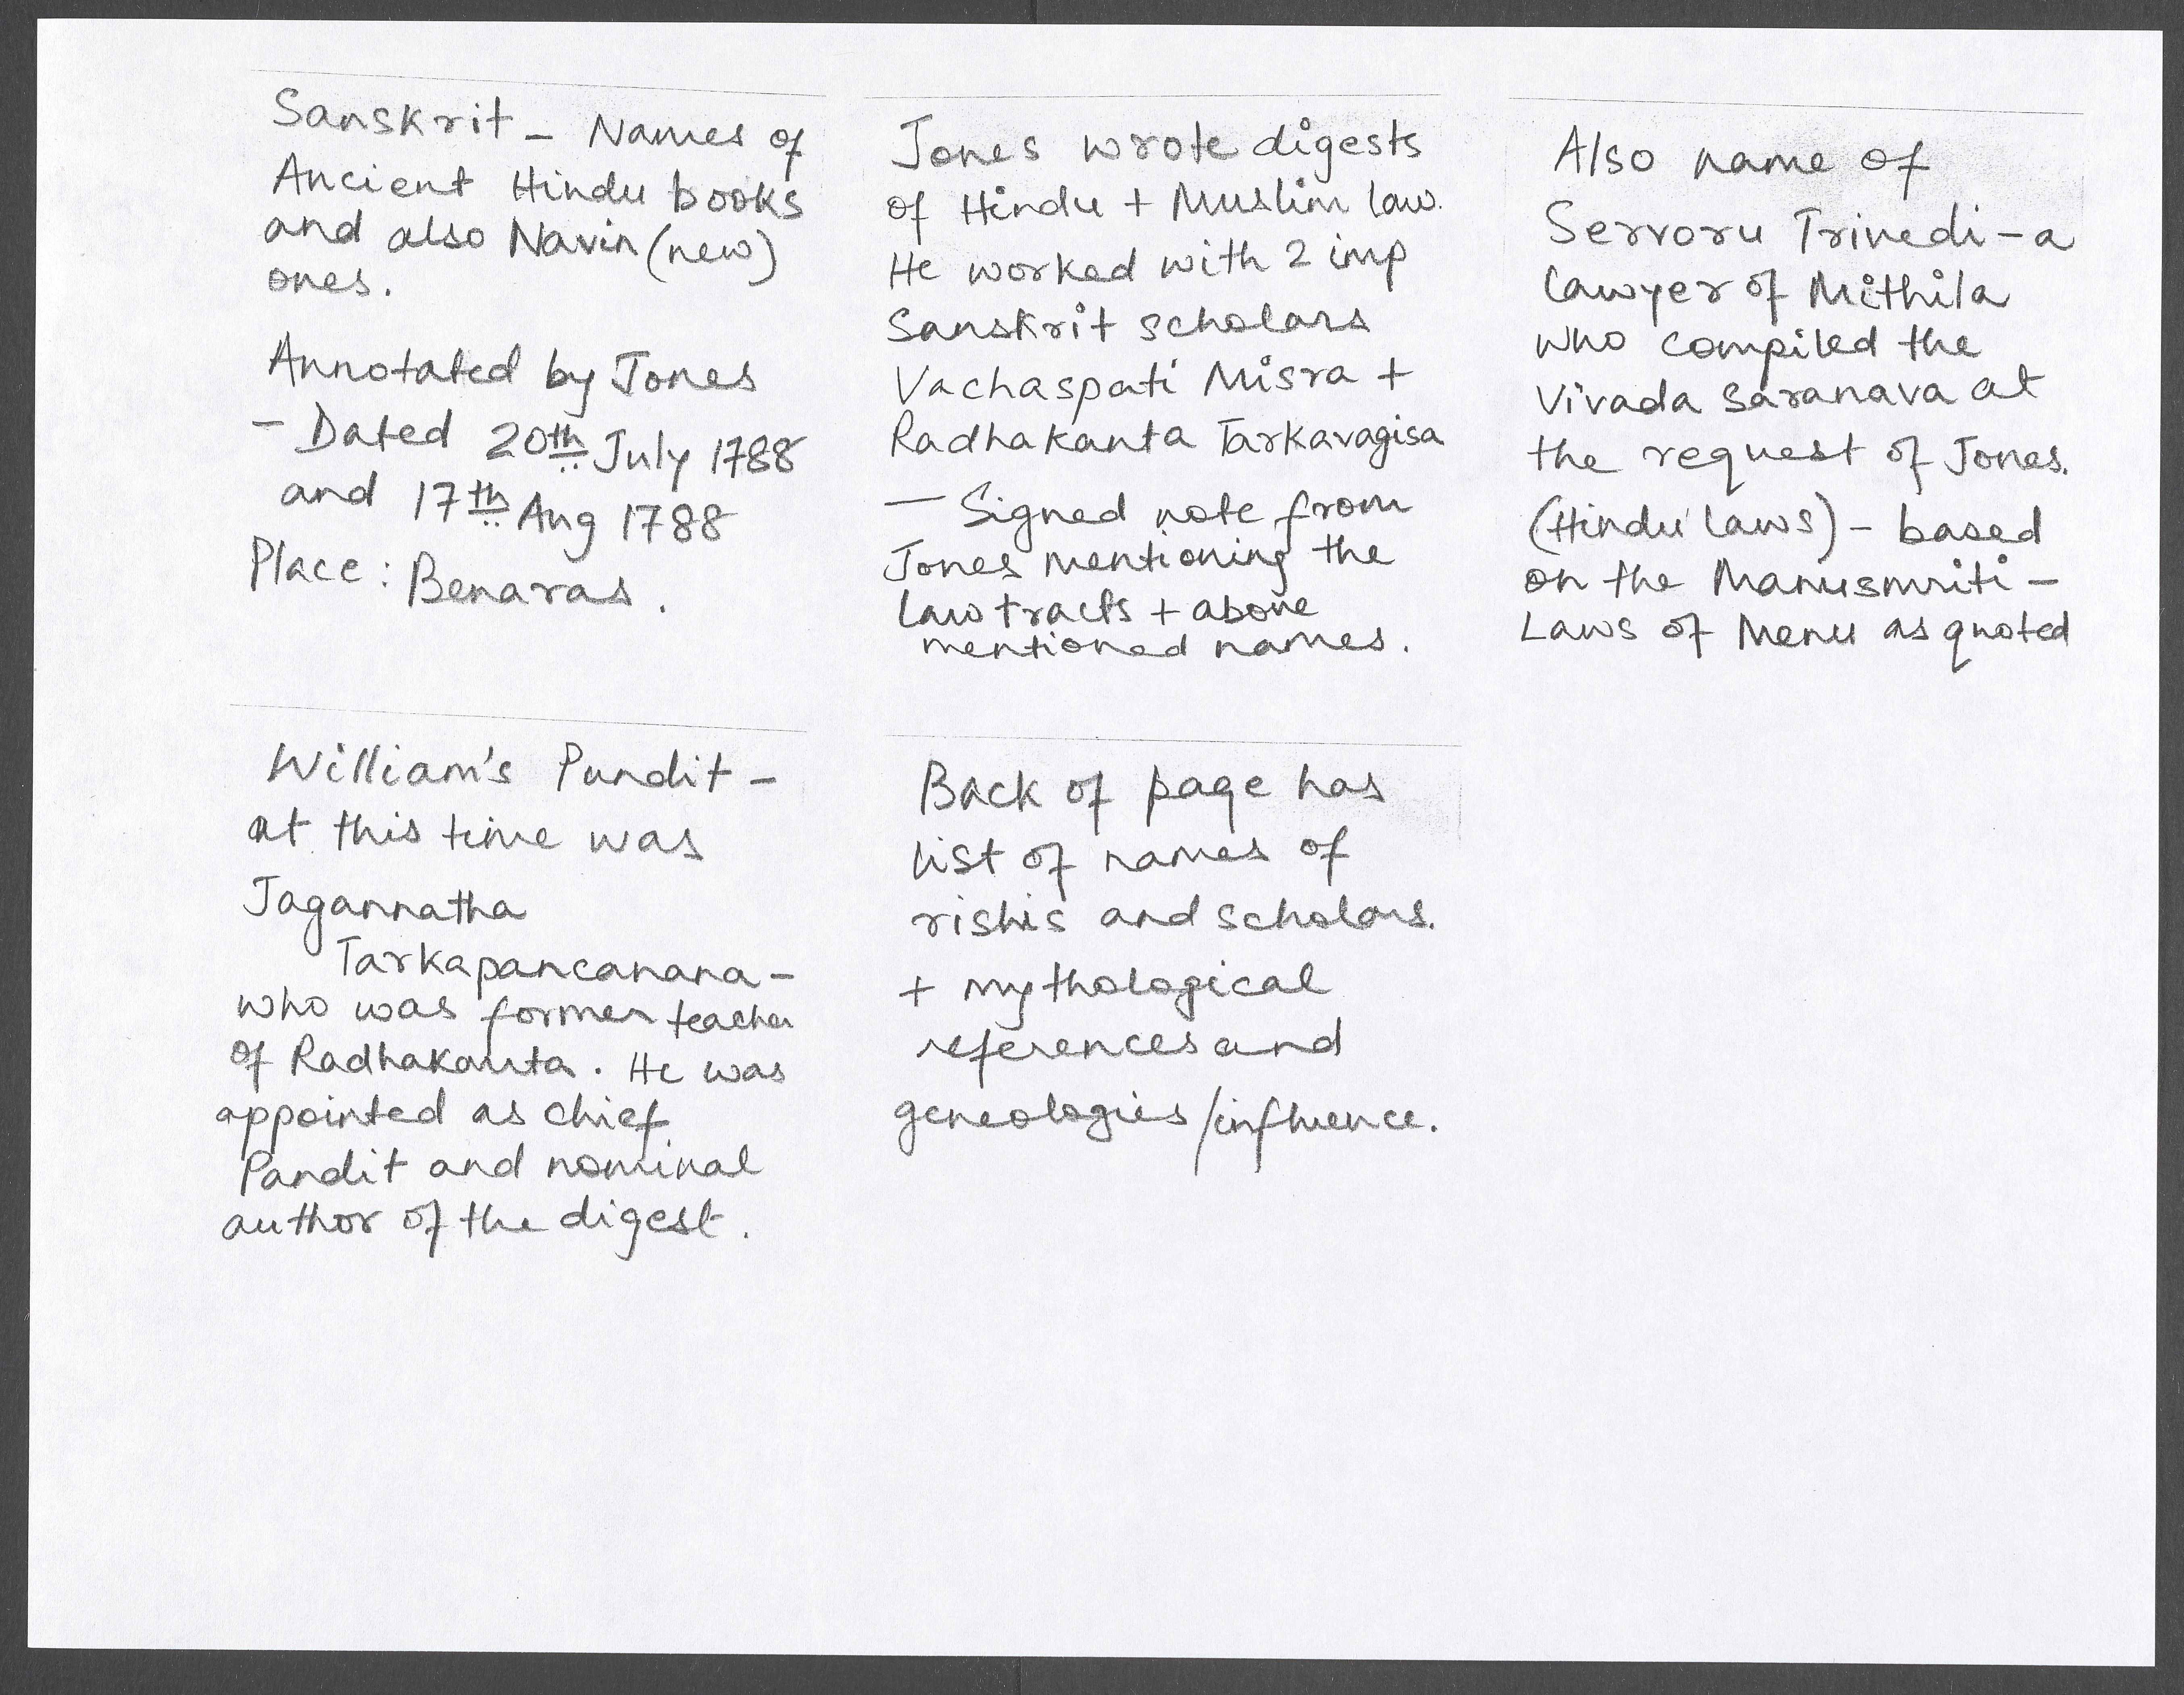 Sanskrit – Names of
Ancient Hindu books
and also Navin (new)
ones.
Annotated by Jones
– Dated 20th July 1788
and 17th Aug 1788
Place: Benaras.
Jones wrote digests
of Hindu + Muslim law.
He worked with 2 imp
Sanskrit scholars
Vachaspati Misra +
Radhakanta Tarkavagisa
— Signed note from
Jones mentioning the
law tracts + above
mentioned names.
Also name of
Servoru Trivedi – a
lawyer of Mithila
who compiled the
Vivada Saranava at
the request of Jones.
(Hindu laws) – based
on the Manusmriti –
Laws of Menu as quoted
William's Pundit –
at this time was
Jagannatha
Tarkapancanana –
who was former teacher
of Radhakanta. He was
appointed as chief
Pandit and nominal
author of the digest.
Back of page has
list of names of
rishis and scholars.
+ mythological
references and
geneologies/influence.